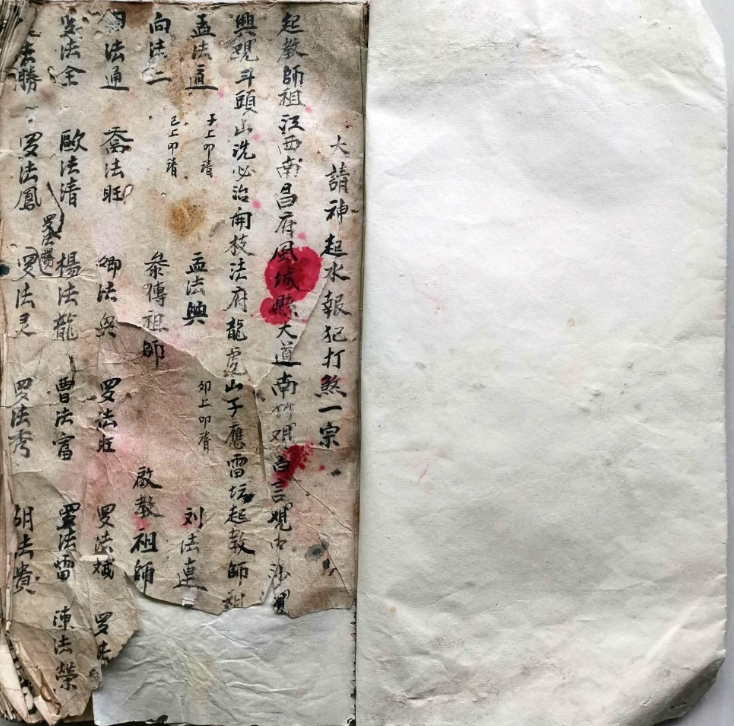 大請神起水報犯打煞一宗
起教師祖江西南昌府風城縣大道南 白言覌
興覌斗頭山洗必治開技法府龍虎山子應雷坛起教師祖
孟法通 子上叩請 孟法興 卯上叩請 刘法連
向法二 己上叩請 叅傳祖師 啟教祖師
法通 喬法旺 卿法興 罗法旺 罗法 罗法
法全 歐法清 楊法龍 曹法富 罗法雷 陳法榮
法勝 罗法鳳 罗法灵 罗法秀 胡法貴
罗法勝